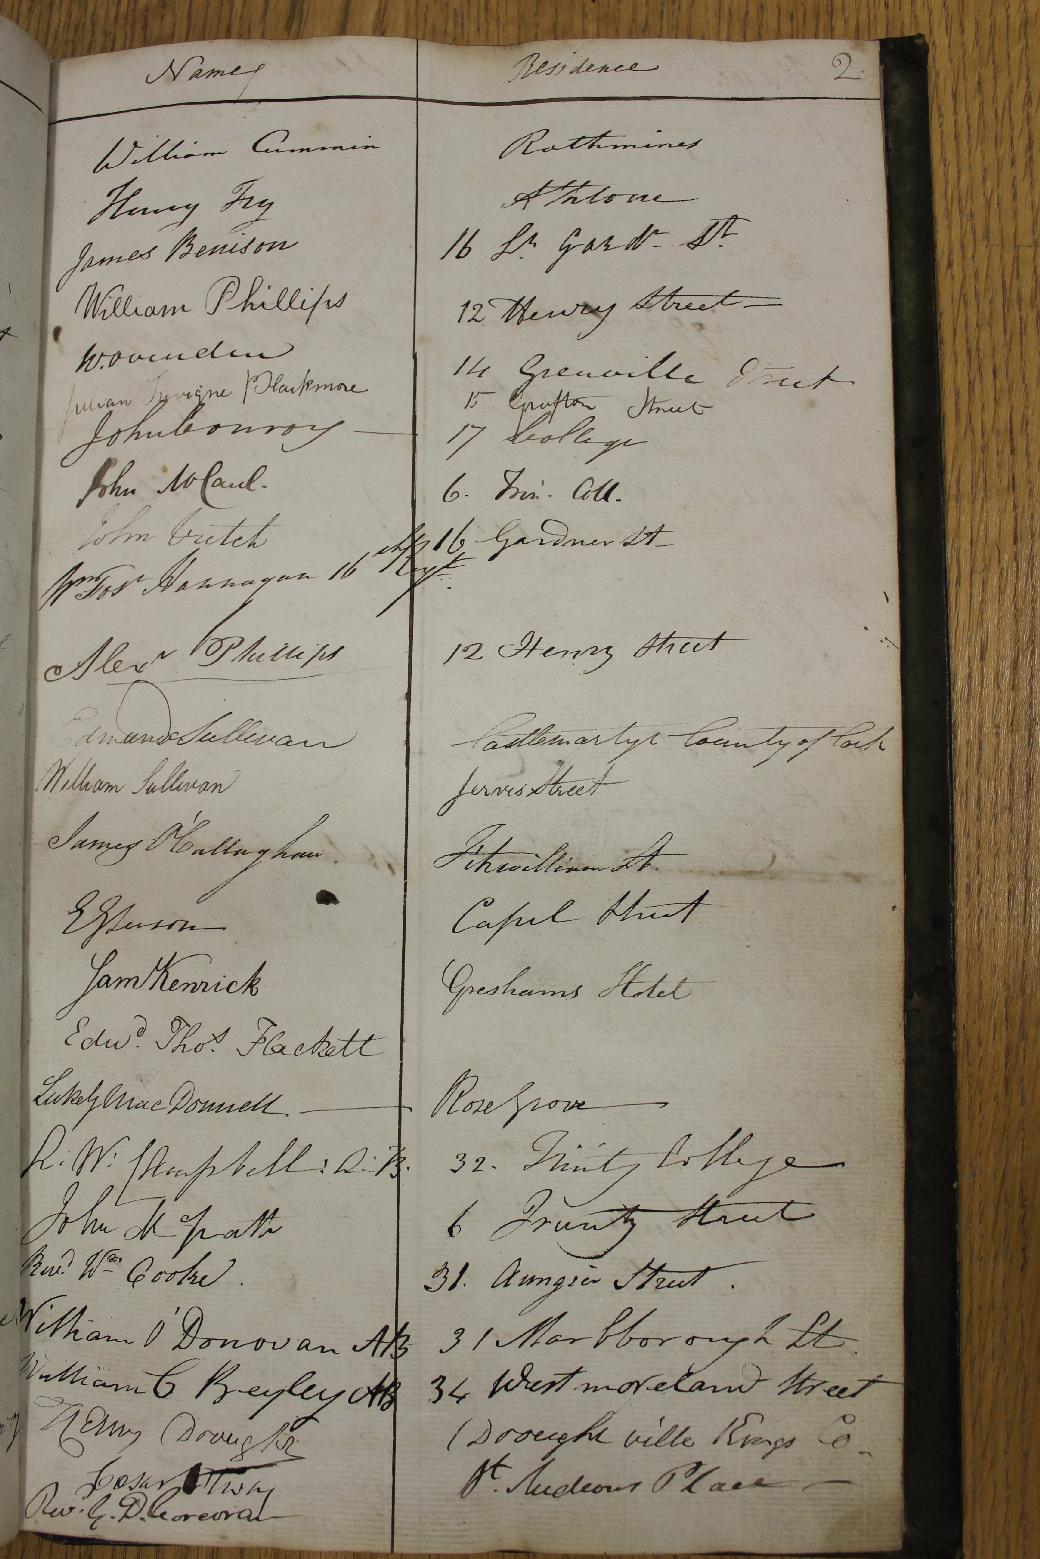 Names Residence 2
William Cummin Rathmines
Henry Fry Athlone
James Benison 16 Lr. Gardr. St.
William Phillips 12 Henry Street
W. Ovenden 14 Grenville Street
Julian Blackmore 15 Grafton Street
John Conroy 17 College
John McCaul. 6. Trin. Coll.
John Veitch 16 Gardner St
Wm. Hannagan 16th Regt.
Alexr Phillips 12 Henry Street
Edmund Sullivan Castlemartyr County of Cork
William Sullivan Jervis Street
James O'Callaghan. Fitzwilliam St.
Capel Street
Sam Kenrick Greshams Hotel
Edwd. Thos. Hackett
Luke G MacDonnell. Rose Grove
R. W. Campbell: A. B. 32. Trinity College
John McGrath 6 Trinity Street
Revd. Wm. Cooke. 31. Aungier Street.
William O'Donovan AB 31 Marlborough St.
William C Begley AB 34 Westmoreland Street
Henry Dovught Doought ville Kings Co.
Cesar Otway St. Audeons Place
Rev. G. D. Corcoran